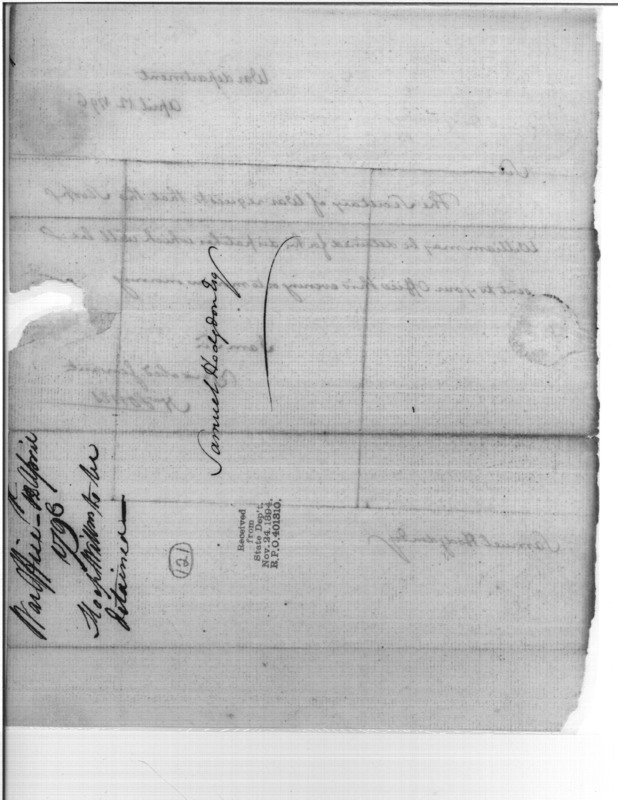 War department
April 12. 1796
Sir
The Secretary of War requests that the Sloop
William may be detained for the dispatches which will be
sent to your Office this evening or tomorrow morning
I am Sir
Samuel Hodgdon Esq
Samuel Hodgdon Esq
War Office - 12 April
1796
Sloop William to be
detained
(121)
Received
from
State Dep't,
Nov. 24, 1894.
R.P.O. 401310.